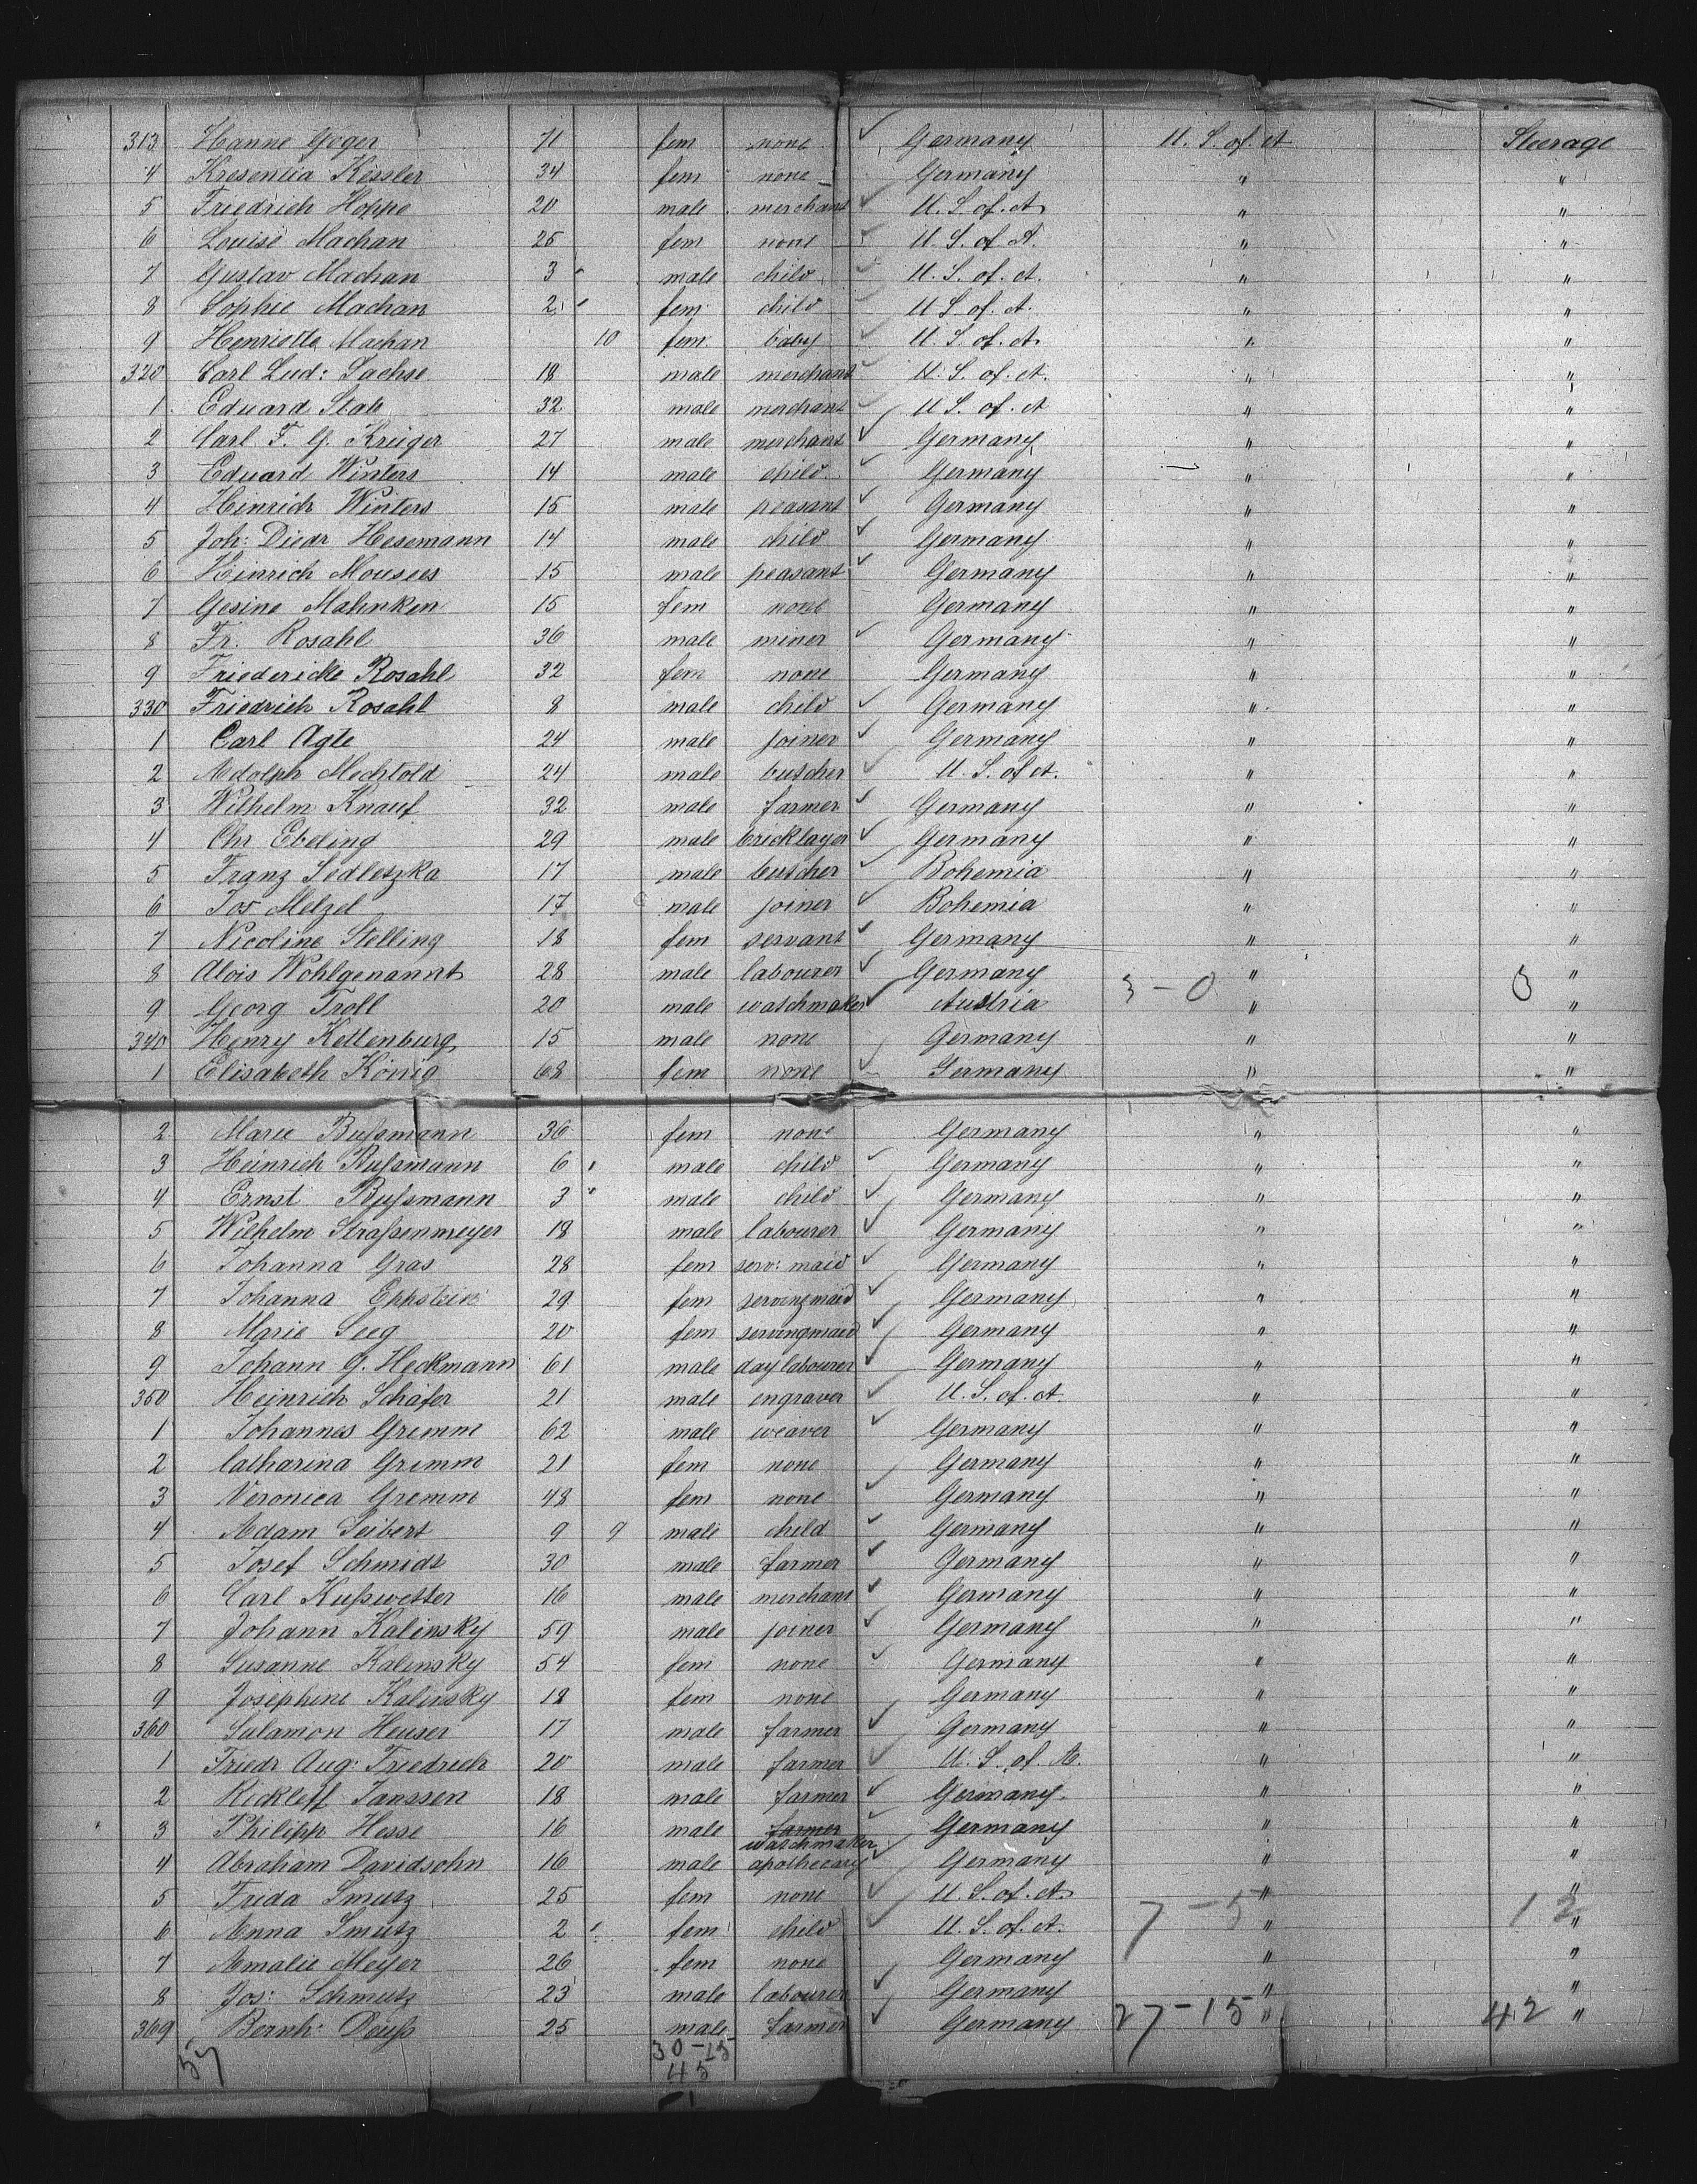 313 Hanne Geger 71 fem none Germany U. S. of. A Steerage
4 Kresentia Kessler 34 fem none Germany " "
5 Friedrich Hoppe 20 male merchant U. S. of. A " "
6 Louise Machan 25 fem none U. S. of A. " "
7 Gustav Machan 3 male child U. S. of. A. " "
8 Sophie Machan 2 fem child U S. of. A. " "
9 Henriette Machan 10 fem. baby U. S. of. A. " "
320 Carl Lud: Sachse 18 male merchant U. S. of. A. " "
1 Eduard 32 male merchant U S. of. A " "
2 Carl F. G. Krüger 27 male merchant Germany " "
3 Eduard Winters 14 male child Germany "
4 Heinrich Winters 15 male peasant Germany " "
5 Joh: Diedr Hesemann 14 male child Germany " "
6 Heinrich Mousees 15 male peasant Germany " "
7 Gesine Mahnken 15 fem none Germany " "
8 Fr. Rosahl 36 male miner Germany " "
9 Friedericke Rosahl 32 fem none Germany " "
330 Friedrich Rosahl 8 male child Germany " "
1 Carl Agte 24 male joiner Germany " "
2 Adolph Mechtold 24 male butcher U. S. of A. " "
3 Wilhelm Knauf 32 male farmer Germany " "
4 Chr Ebeling 29 male bricklayer Germany " "
5 Franz Sedleszka 17 male butcher Bohemia " "
6 Jos Melzel 17 male joiner Bohemia " "
7 Nicoline Stelling 18 fem servant Germany " "
8 Alois Wohlgenannt 28 male labourer Germany 3-0 " "
9 Georg Troll 20 male watchmaker Austria " "
340 Henry Kettenburg 15 male none Germany " "
1 Elisabeth König 68 fem none Germany " "
2 Marie Bußmann 36 fem none Germany " "
3 Heinrich Bußmann 6 male child Germany " "
4 Ernst Bußmann 3 male child Germany " "
5 Wilhelm Straßenmeyer 18 male labourer Germany " "
6 Johanna Gras 28 fem serv: maid Germany " "
7 Johanna Eppstein 29 fem servingmaid Germany " "
8 Marie Seeg 20 fem servingmaid Germany " "
9 Johann G. Heckmann 61 male day labourer Germany " "
350 Heinrich Schäfer 21 male engraver U. S. of. A. " "
1 Johannes Gremm 62 male weaver Germany " "
2 Catharina Gremm 21 fem none Germany " "
3 Veronica Gremm 48 fem none Germany " "
4 Adam Seibert 9 9 male child Germany " "
5 Josef Schmidt 30 male farmer Germany " "
6 Carl Kußwetter 16 male merchant Germany " "
7 Johann Kalinsky 59 male joiner Germany " "
8 Susanne Kalinsky 54 fem none Germany " "
9 Josephine Kalinsky 18 fem none Germany " "
360 Salamon Heuser 17 male farmer Germany " "
1 Friedr Aug: Friedrich 20 male farmer U. S. of. A. " "
2 Rickleff Janssen 18 male farmer Germany " "
3 Philipp Hesse 16 male farmer Germany " "
watchmaker
4 Abraham Davidsohn 16 male apothecary Germany " "
5 Frida Smutz 25 fem none U. S. of. A. " "
6 Anna Smutz 2 fem child U. S. of. A. 7-5 " 12 "
7 Amalie Meyer 26 fem none Germany " "
8 Jos: Schmutz 23 male labourer Germany " "
369 Bernh: Deuß 25 male farmer Germany 27-15 " 42 "
57 30-15
45